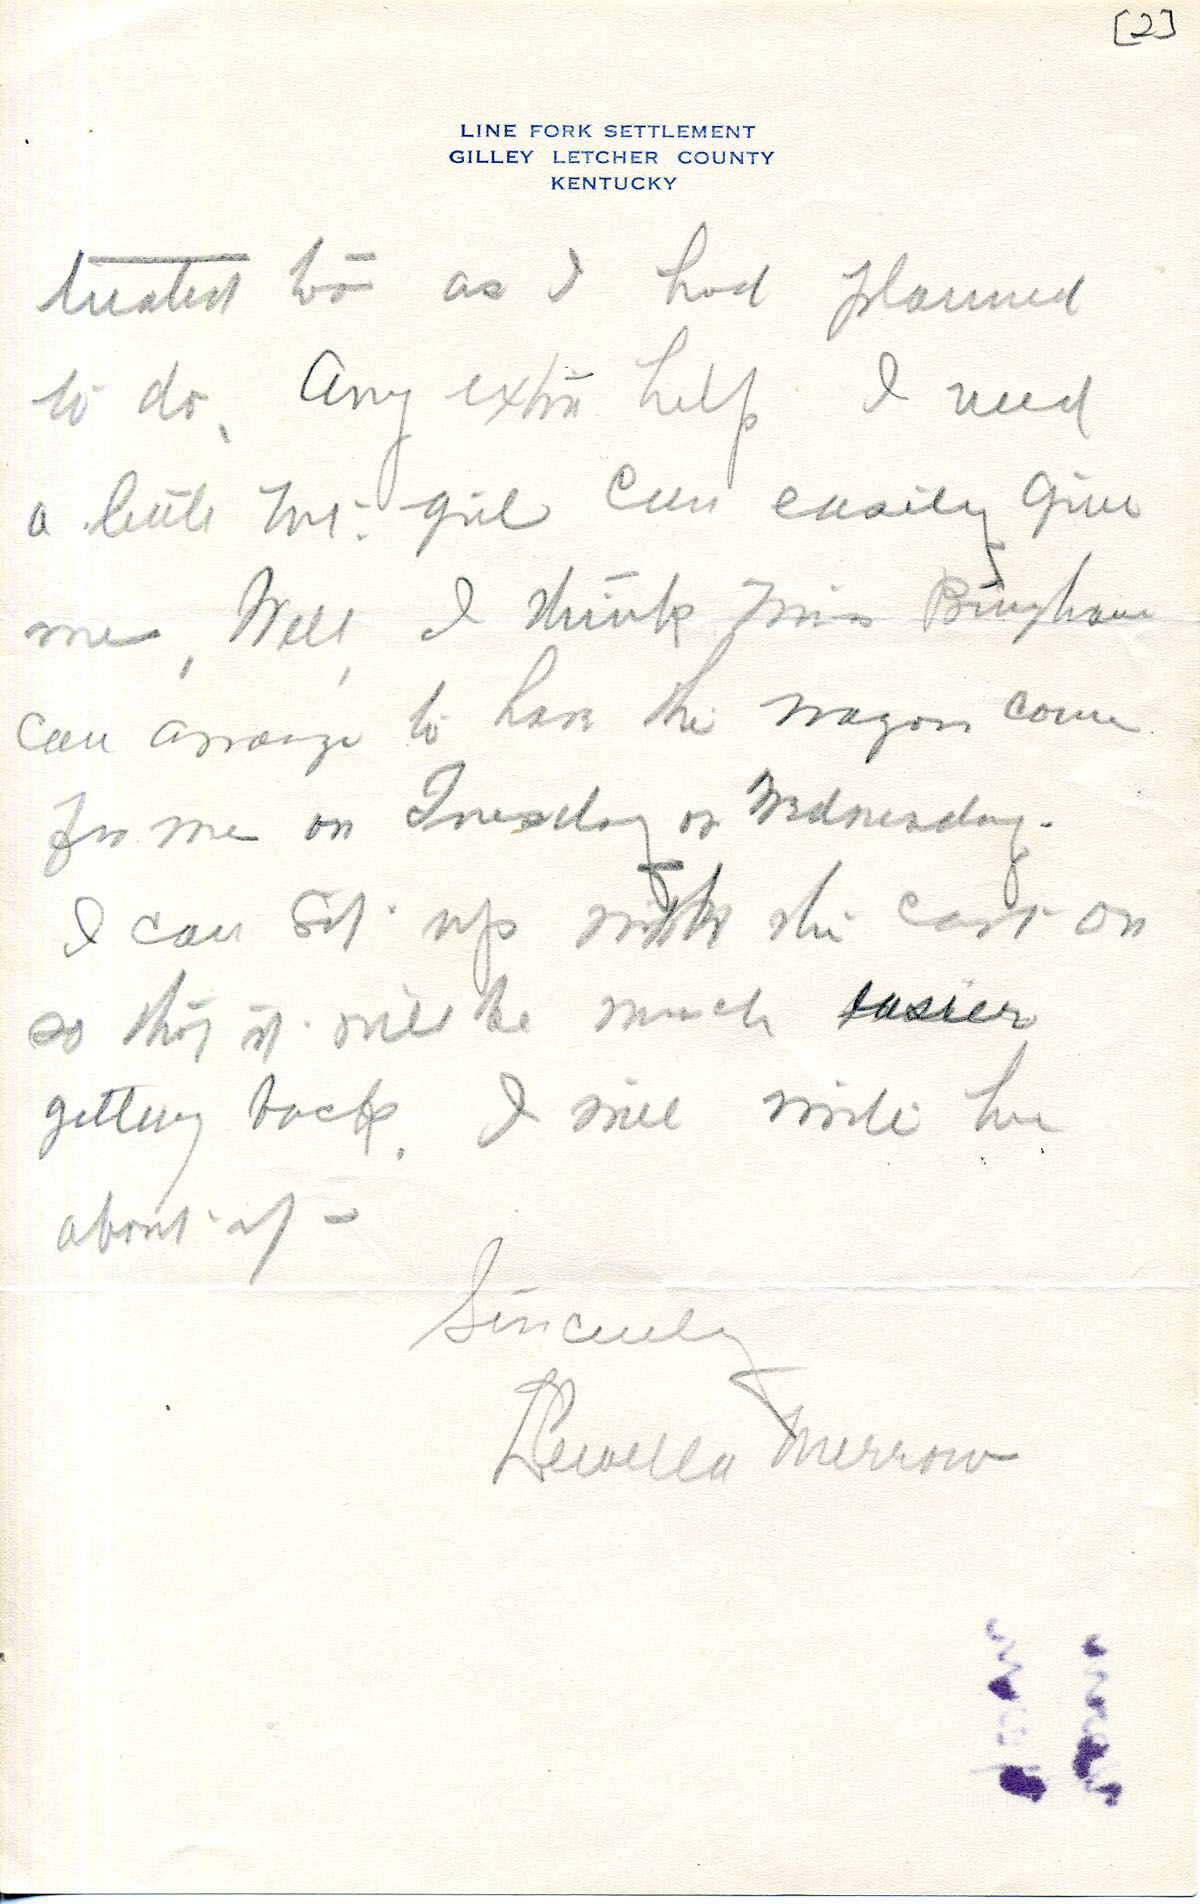 [2]
LINE FORK SETTLEMENT
GILLEY LETCHER COUNTY
KENTUCKY
treated too as I had planned
to do. Any extra help I need
a little girl can easily give
me, Well, I think Miss Bingham
can arrange to have the wagon come
for me on Tuesday or Wednesday.
I can sit up with the cast on
so that it will be much easier
getting back. I will write her
about it -
Sincerely
Llewella Merrow